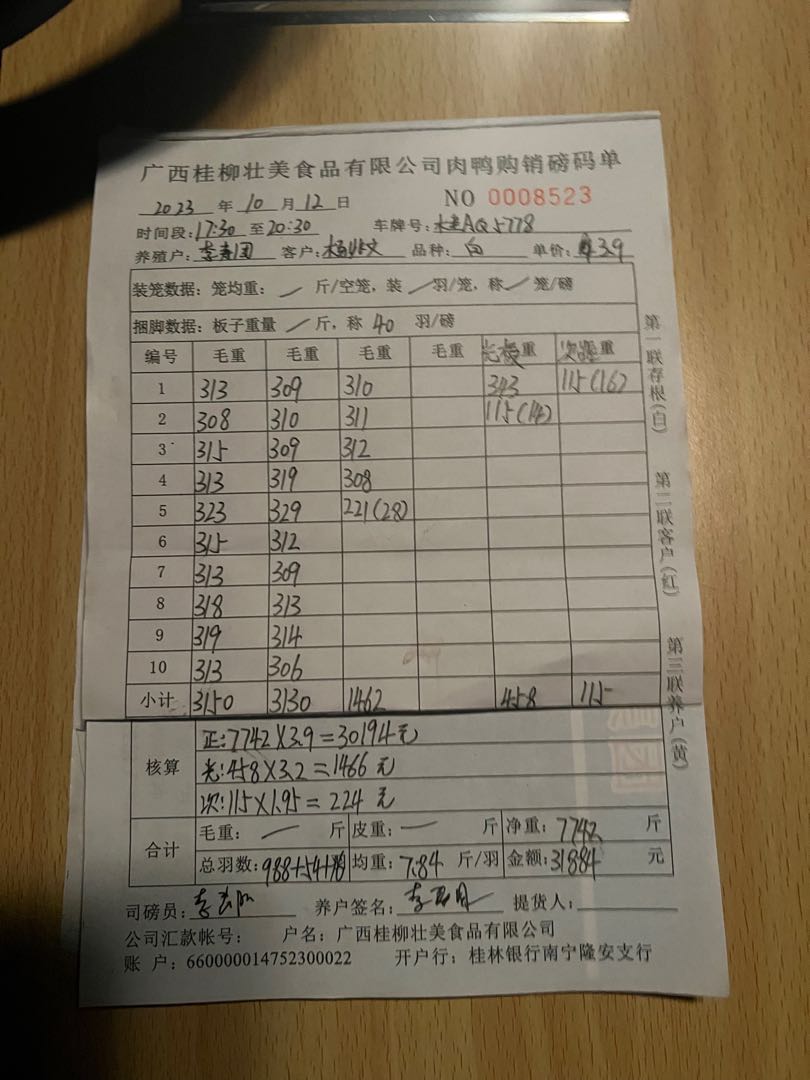 广西桂柳壮美食品有限公司肉鸭购销磅码单
2023 年 10 月 12 日 NO 0008523
时间段:17:30 至 20:30 车牌号: AQ5778
养殖户: 客户: 品种: 白 单价: 3.9
装笼数据: 笼均重: / 斤/空笼, 装 / 羽/笼, 称 / 笼/磅
捆脚数据: 板子重量 / 斤, 称 40 羽/磅
编号 毛重 毛重 毛重 毛重 重 重
1 313 309 310 343 115(16)
2 308 310 311 115(14)
3 315 309 312
4 313 319 308
5 323 329 221(28)
6 315 312
7 313 309
8 318 313
9 319 314
10 313 306
小计 3150 3130 1462 458 115
核算
正:7742×3.9=30194元
光:458×3.2=1466元
次:115×1.95=224元
合计
毛重: — 斤 皮重: — 斤 净重: 7742 斤
总羽数: 988+54+16 均重: 7.84 斤/羽 金额: 31884 元
司磅员: 养户签名: 提货人:
公司汇款帐号: 户名: 广西桂柳壮美食品有限公司
账 户: 660000014752300022 开户行: 桂林银行南宁隆安支行
第一联存根(白)
第二联客户(红)
第三联养户(黄)